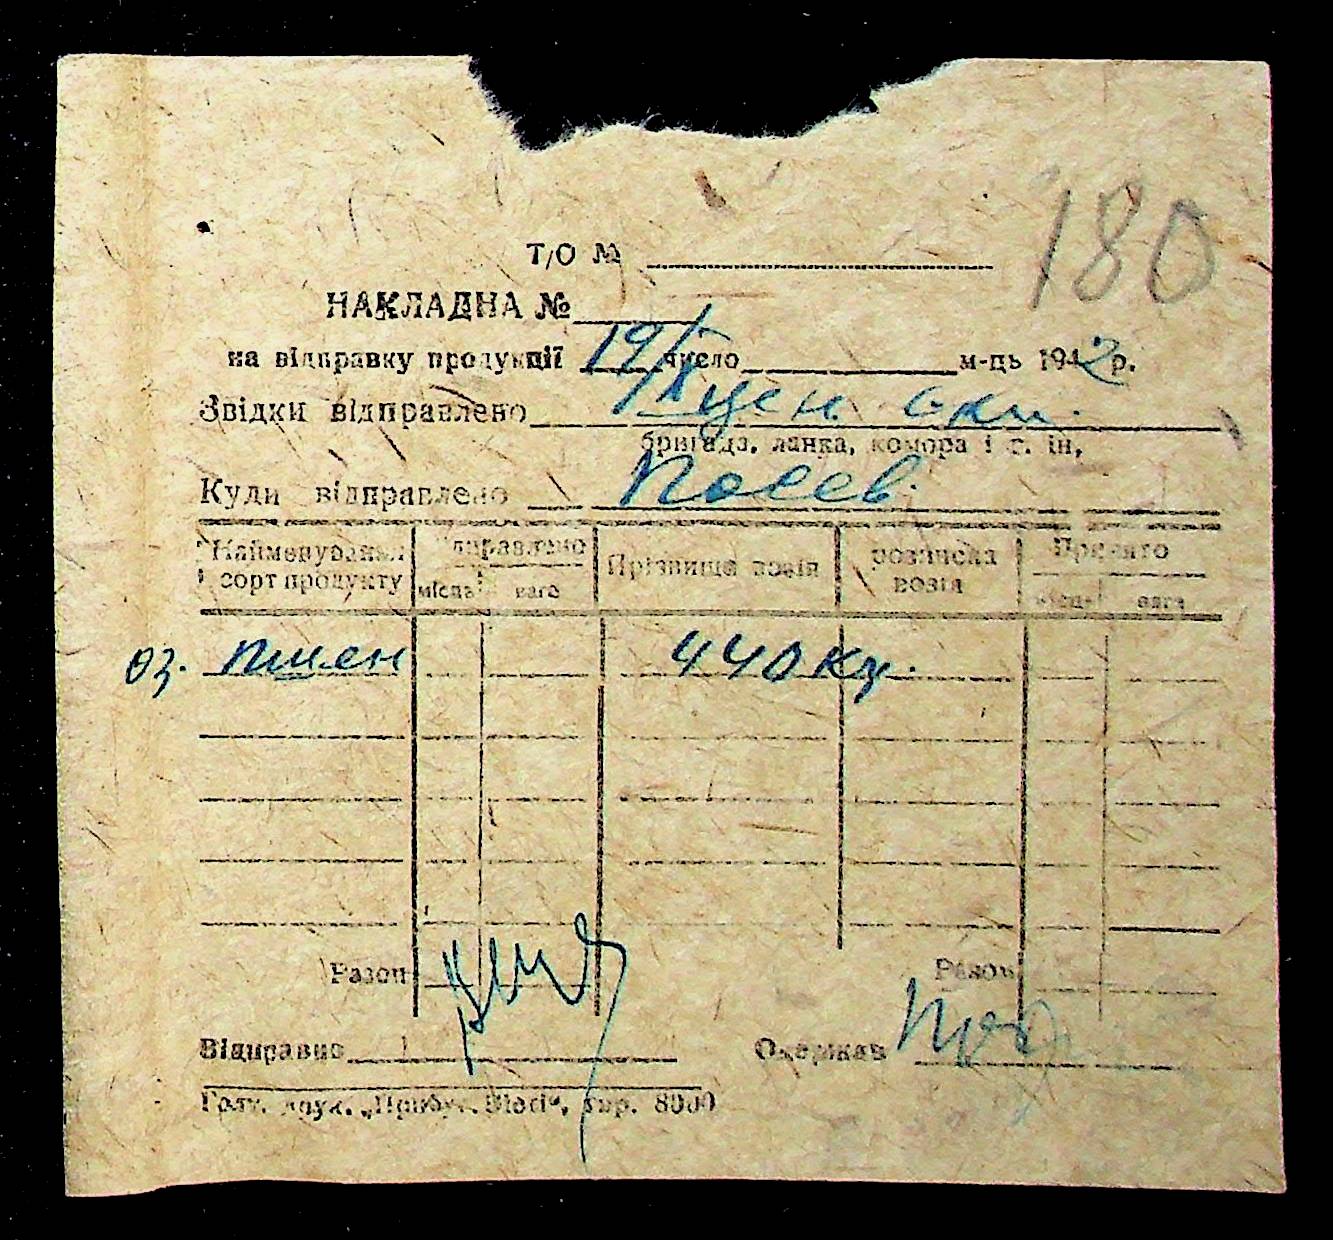 180
Т/О №
НАКЛАДНА №
на відправку продукції 19/X число м-ць 1942 р.
Звідки відправлено цен. скл.
бригада, ланка, комора і т. ін.
Куди відправлено Посев.
Найменування відправлено Прізвище возія розписка Прийнято
сорт продукту місць вага возія місць вага
оз. пшен 440 кг.
Разом Разом
Відправив Одержав
Голт. друк. „Прибуз. Вісті“, тир. 8000